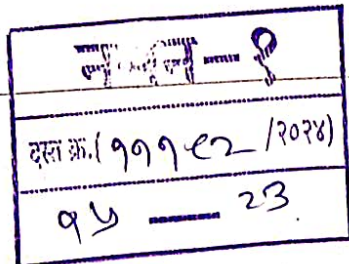 — १
दस्त क्र.( १११९२ /२०२४)
१५ —— २३